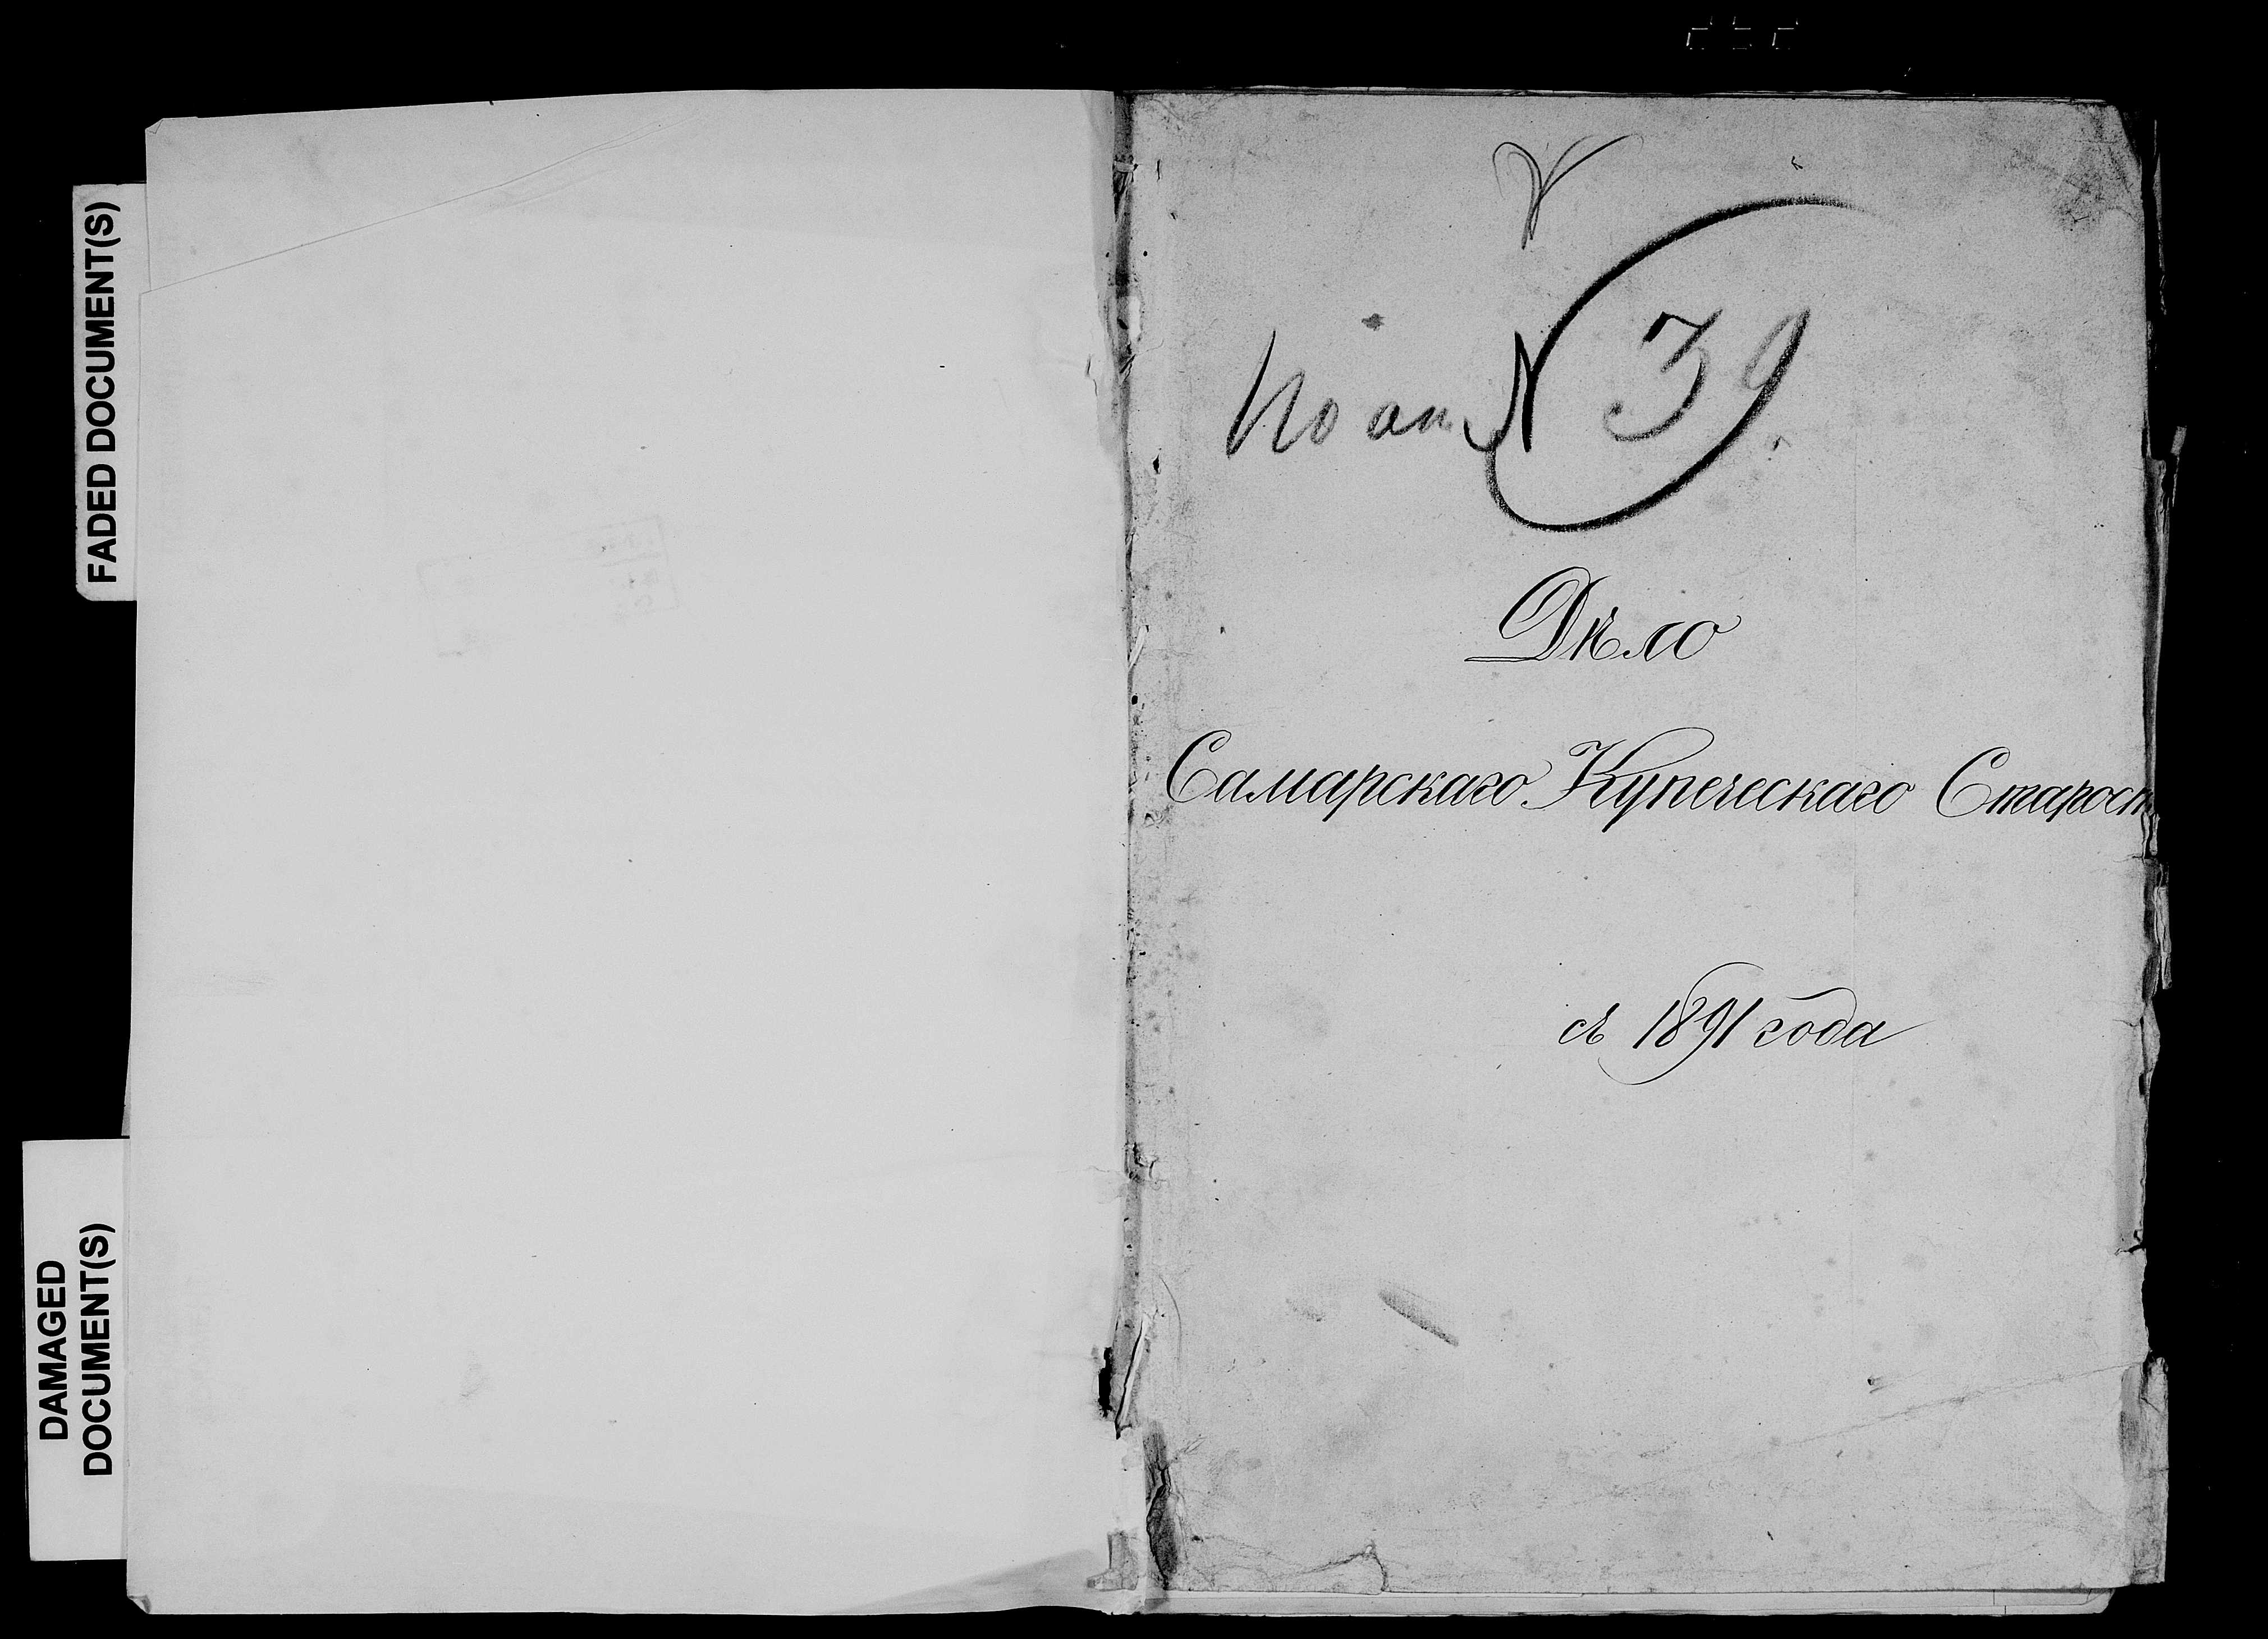 FADED DOCUMENT(S)
DAMAGED
DOCUMENT(S)
По оп. № 39.
Дѣло
Самарскаго Купеческаго Старост
съ 1891 года